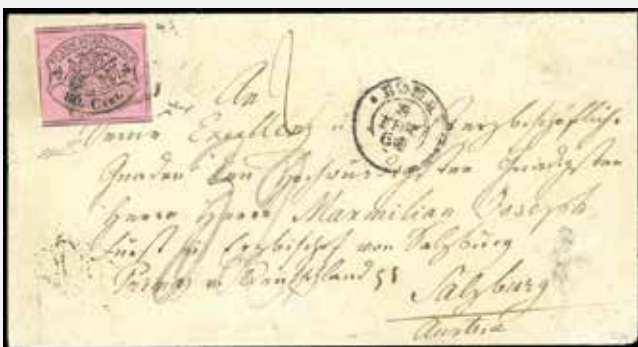 80 Cent.
ROMA
An
Seine Excellenz erzbischöfliche
Gnaden den Hochwürdigsten Gnädigsten
Herrn Herrn Maxmilian Joseph
Fürst Erzbischof von Salzburg
Primas Deutschland
Salzburg
Austria